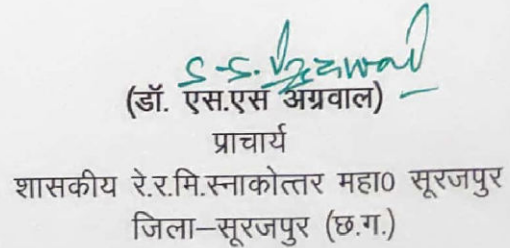 S-S. Agrawal
(डॉ. एस.एस अग्रवाल)
प्राचार्य
शासकीय रे.र.मि.स्नाकोत्तर महा0 सूरजपुर
जिला–सूरजपुर (छ.ग.)